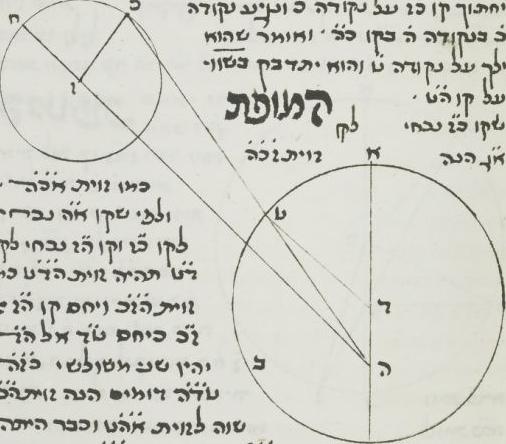 יחתוך קו כז על נקודה כ ונניע נקודה
כ בנקודה ה בקו כל ואומר שהוא
ילך על נקודה ט והוא יתדבק בשווי
על קו הט
המופת
שקו כז נכחי לקו
הנה זוית זכה
כמו זוית אכה
ולפי שקו אה נכחי
לקו כז וקו הז נכחי לקו
דט תהיה זוית הדט כמו
זוית הזכ ויחס קו הז אל
זכ כיחס טד אל הד
יהיו שני משולשי כזה
טדה דומים הנה זוית
שוה לזוית אהט וכבר היתה
ח
כ
ז
א
ט
ד
ה
ב